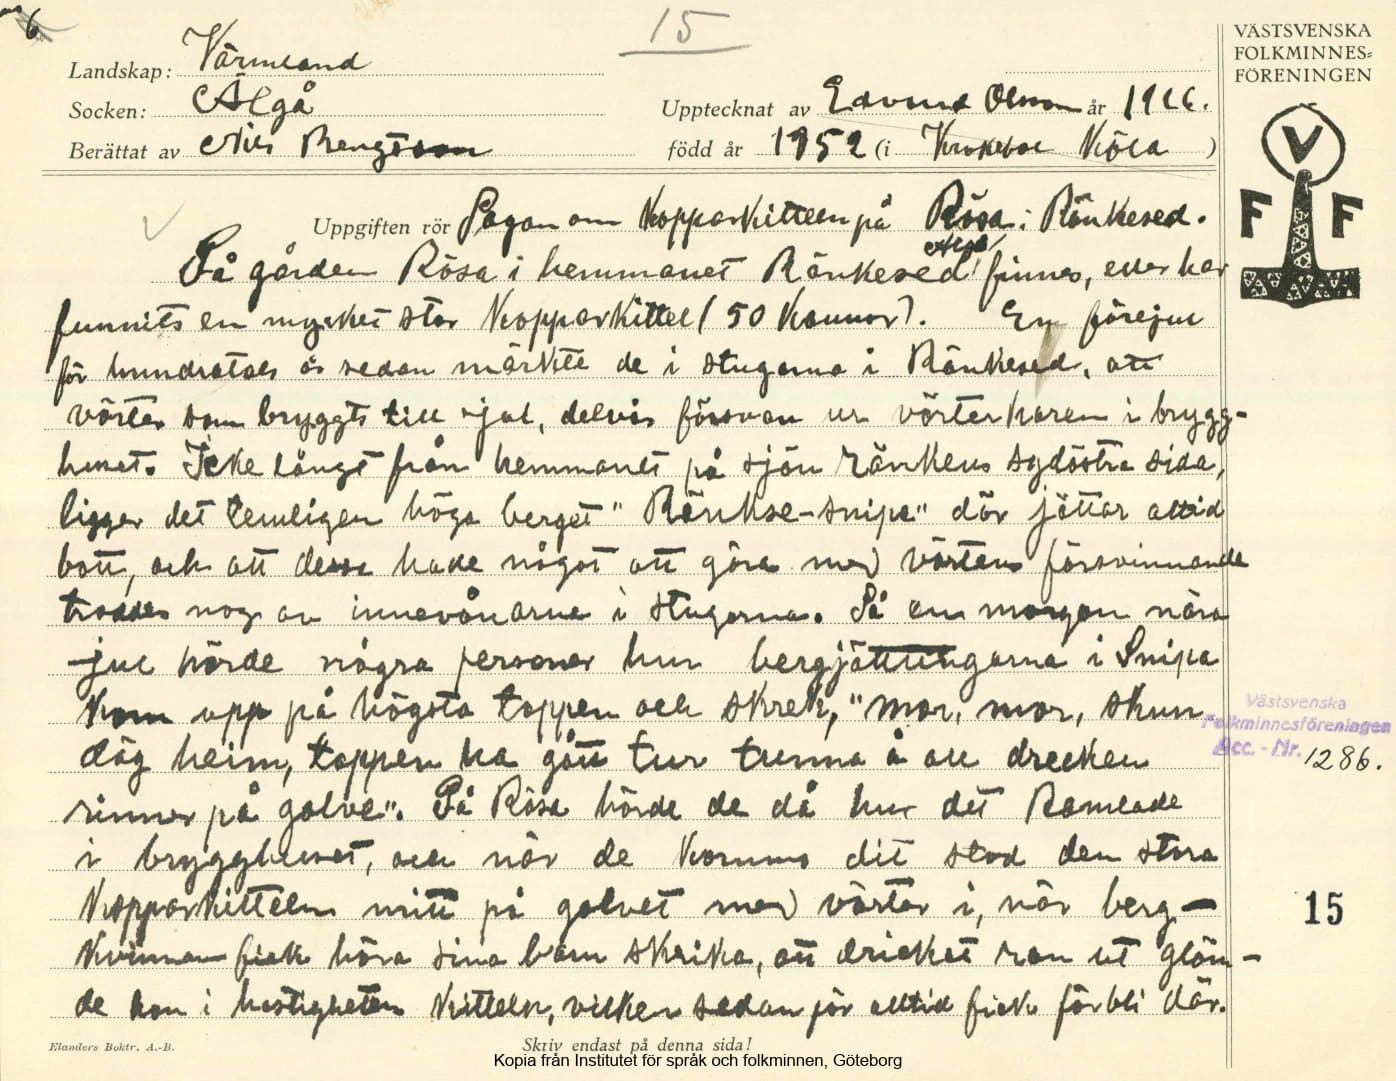 6
15
VÄSTSVENSKA
FOLKMINNES=
FÖRENINGEN
Landskap: Värmland
Socken: Älgå
Upptecknat av Edvind Olsson år 1926.
Berättat av Nils Bengtsson
född år 1852 (i Köla )
V
F F
Uppgiften rör Sagan om Kopparkitteln på Rösa i Ränkesed.
På gården Rösa i hemmanet Ränkesed, Älgå, finnes, eller har
funnits en mycket stor Kopparkittel (50 kannor). En förejul
för hundratals år sedan märkte de i stugorna i Ränkesed, att
vörten som bryggts till jul, delvis försvan ur vörterkaren i brygg-
huset. Icke långt från hemmanet på sjön Ränkens sydöstra sida,
ligger det temligen höga berget "Ränkse-snipa" där jättar alltid
bott, och att dessa hade något att göra med vörtens försvinnande
troddes nog av innevånarne i stugorna. Så en morgon nära
jul hörde några personer hur bergjättungarna i Snipa
kom upp på högsta toppen och skrek, "mor, mor, skun
däg heim, tappen ha gått tur tunna å all drecken
rinner på golve". På Rösa hörde de då hur det Ramlade
i brygghuset, och när de kommo dit stod den stora
Kopparkitteln mitt på golvet med vörter i, när berg-
kvinnan fick höra sina barn skrika, att dricket ran ut glöm-
de hon i hastigheten kitteln, vilken sedan för alltid fick förbli där.
Västsvenska
Folkminnesföreningen
Acc. - Nr. 1286.
15
Elanders Boktr. A.-B.
Skriv endast på denna sida!
Kopia från Institutet för språk och folkminnen, Göteborg